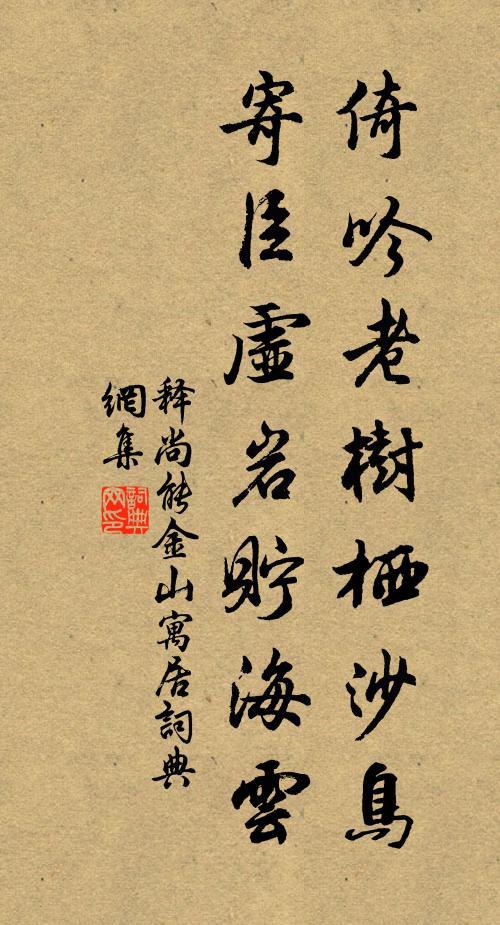 倚吟老樹栖沙鳥
寄臣虛岩貯海雲
释尚能金山寓居詞典
網集
詞典
网印